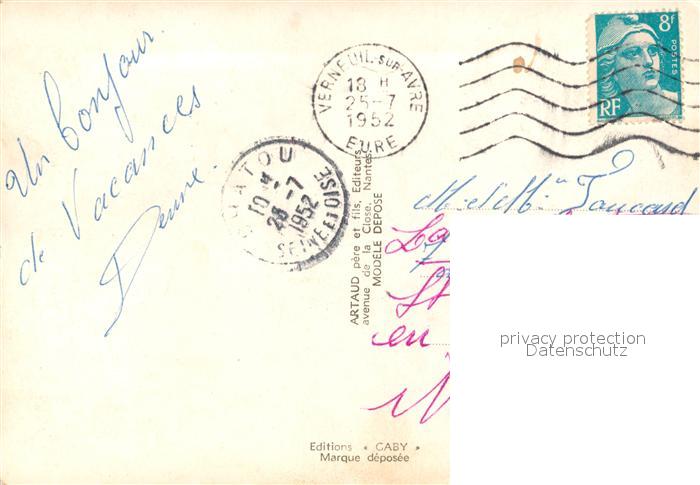 Un bonjour
de Vacances
VERNEUIL-SUR-AVRE
18 H
25-7
1952
EURE
CHATOU
10 H
26-7
1952
SEINE ET OISE
8F
POSTES
RF
ARTAUD père et fils, Editeurs
avenue de la Close, Nantes
MODÈLE DÉPOSÉ
M. et Mme
La
St
en
privacy protection
Datenschutz
Editions « GABY »
Marque déposée